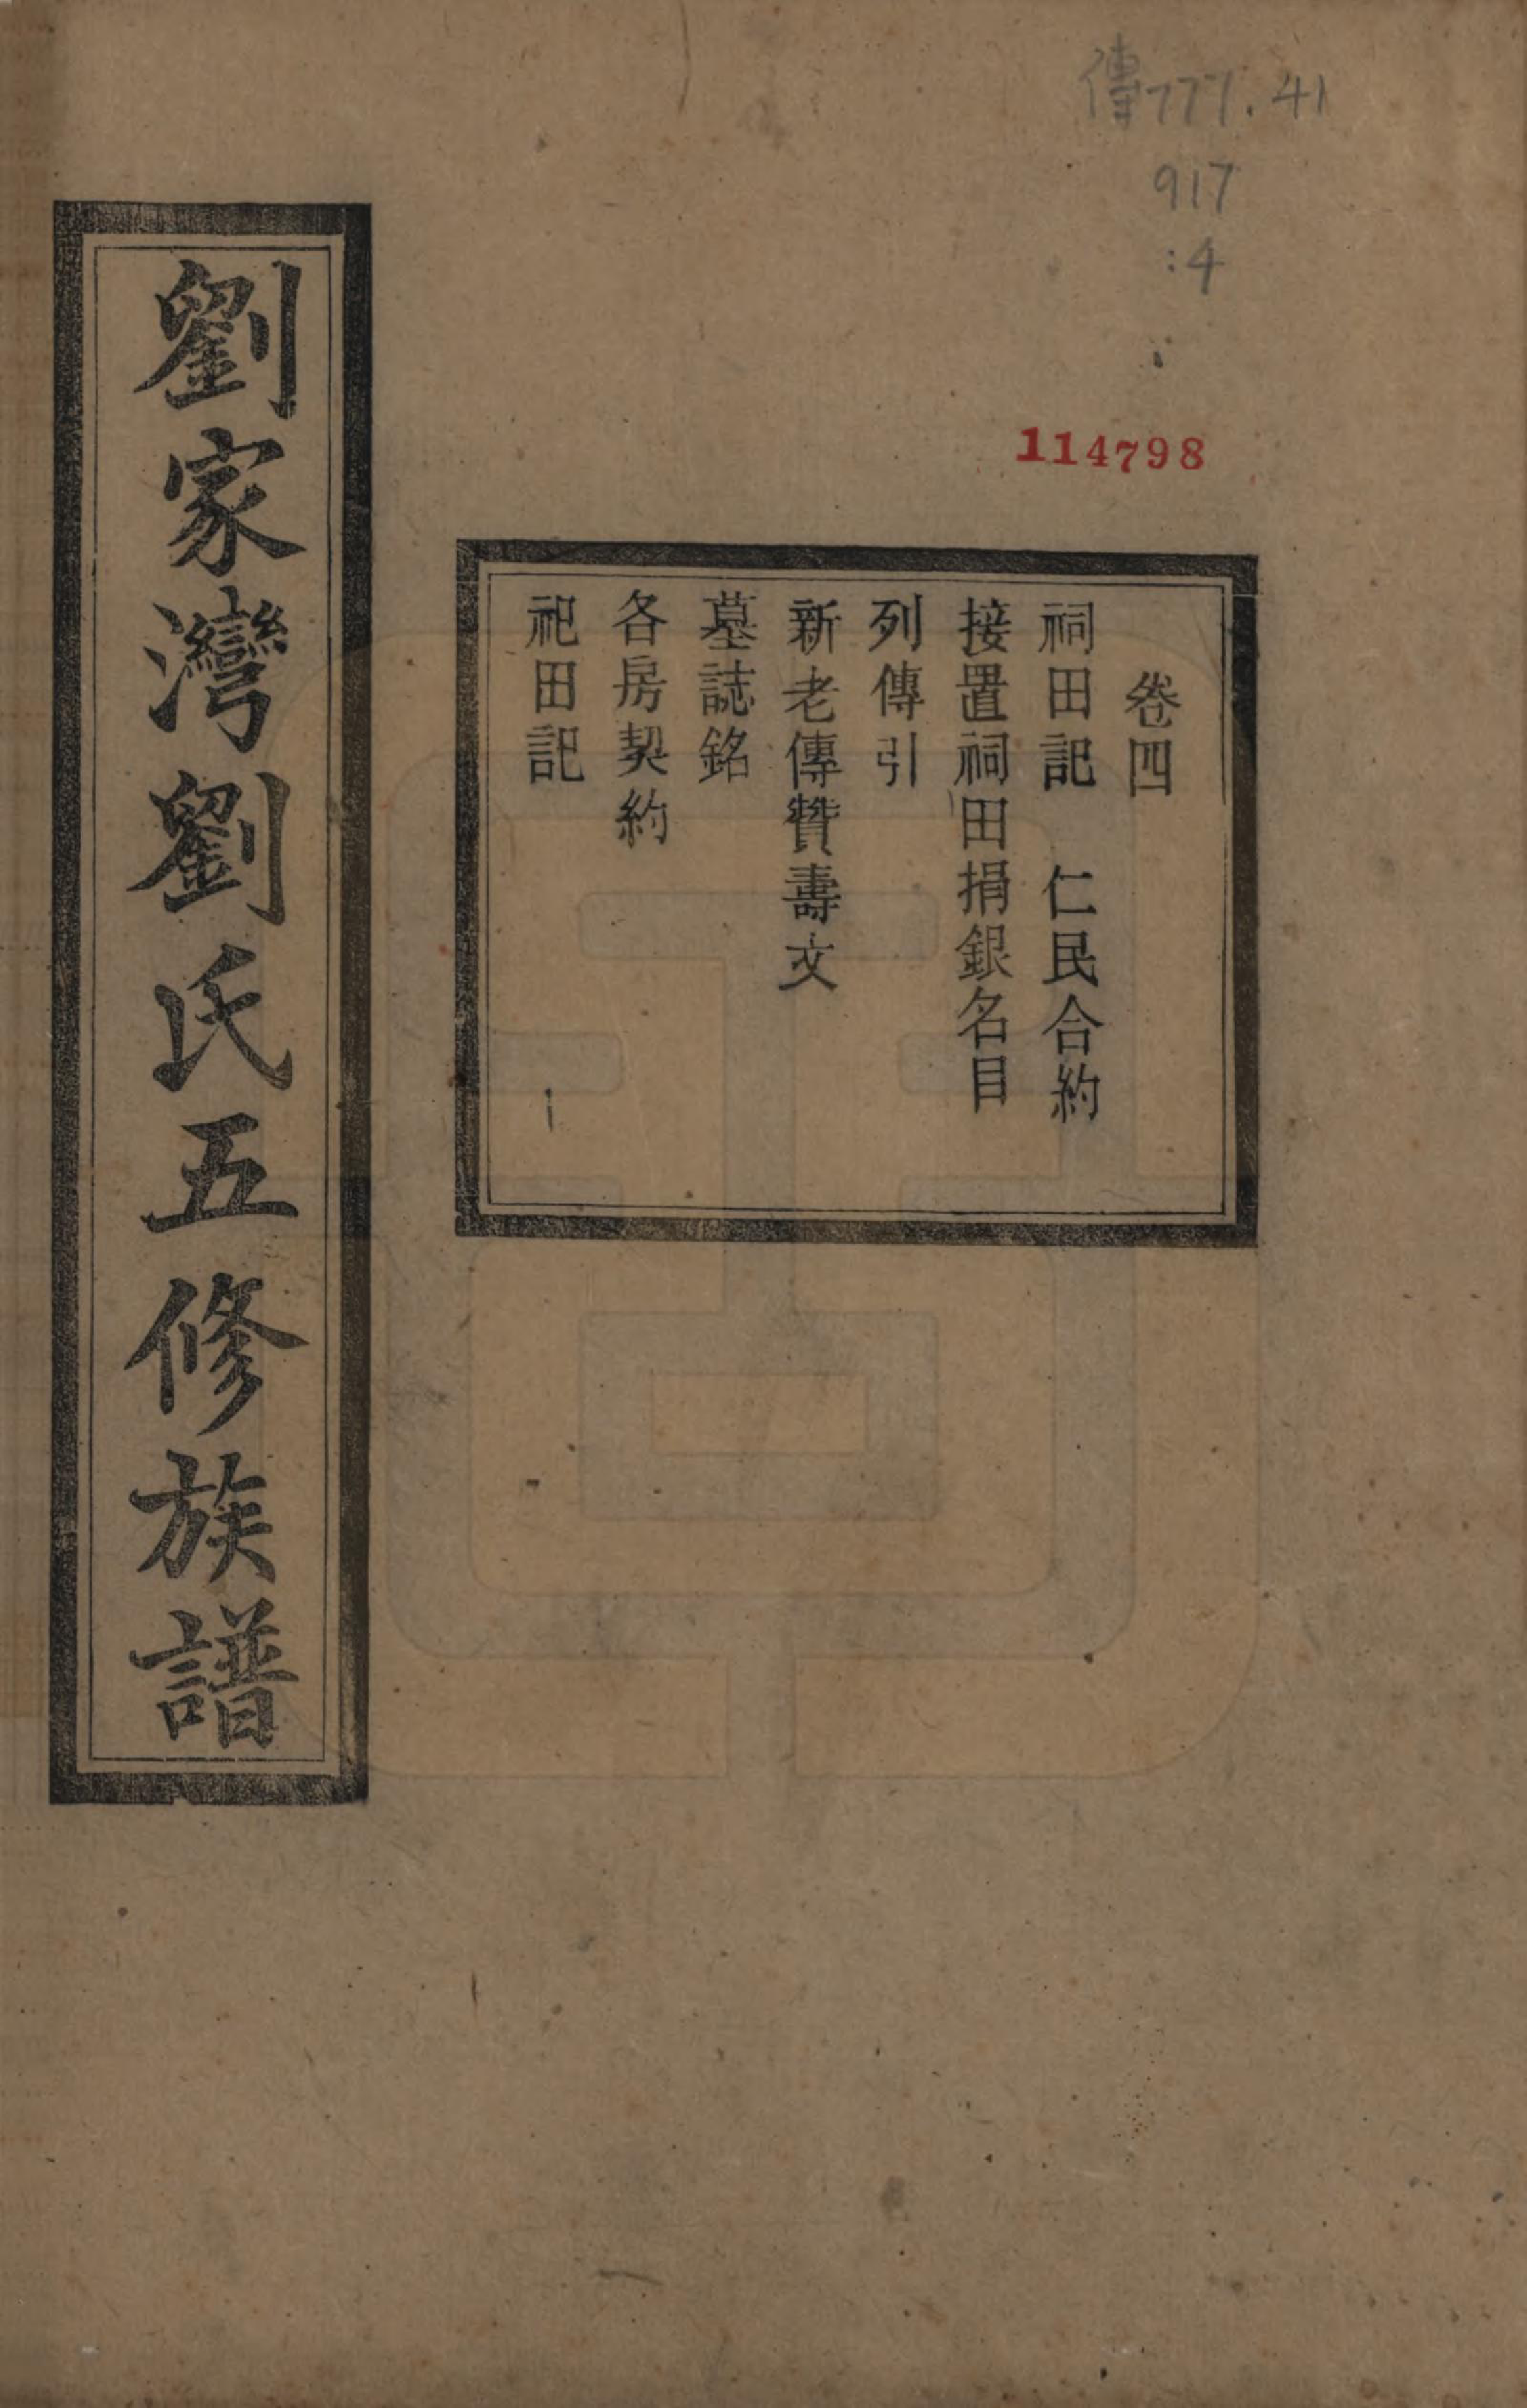 傳777.41
917
:4
114798
卷四
祠田記 仁民合約
接置祠田捐銀名目
列傳引
新老傳贊壽文
墓誌銘
各房契約
祀田記
劉家灣劉氏五修族譜